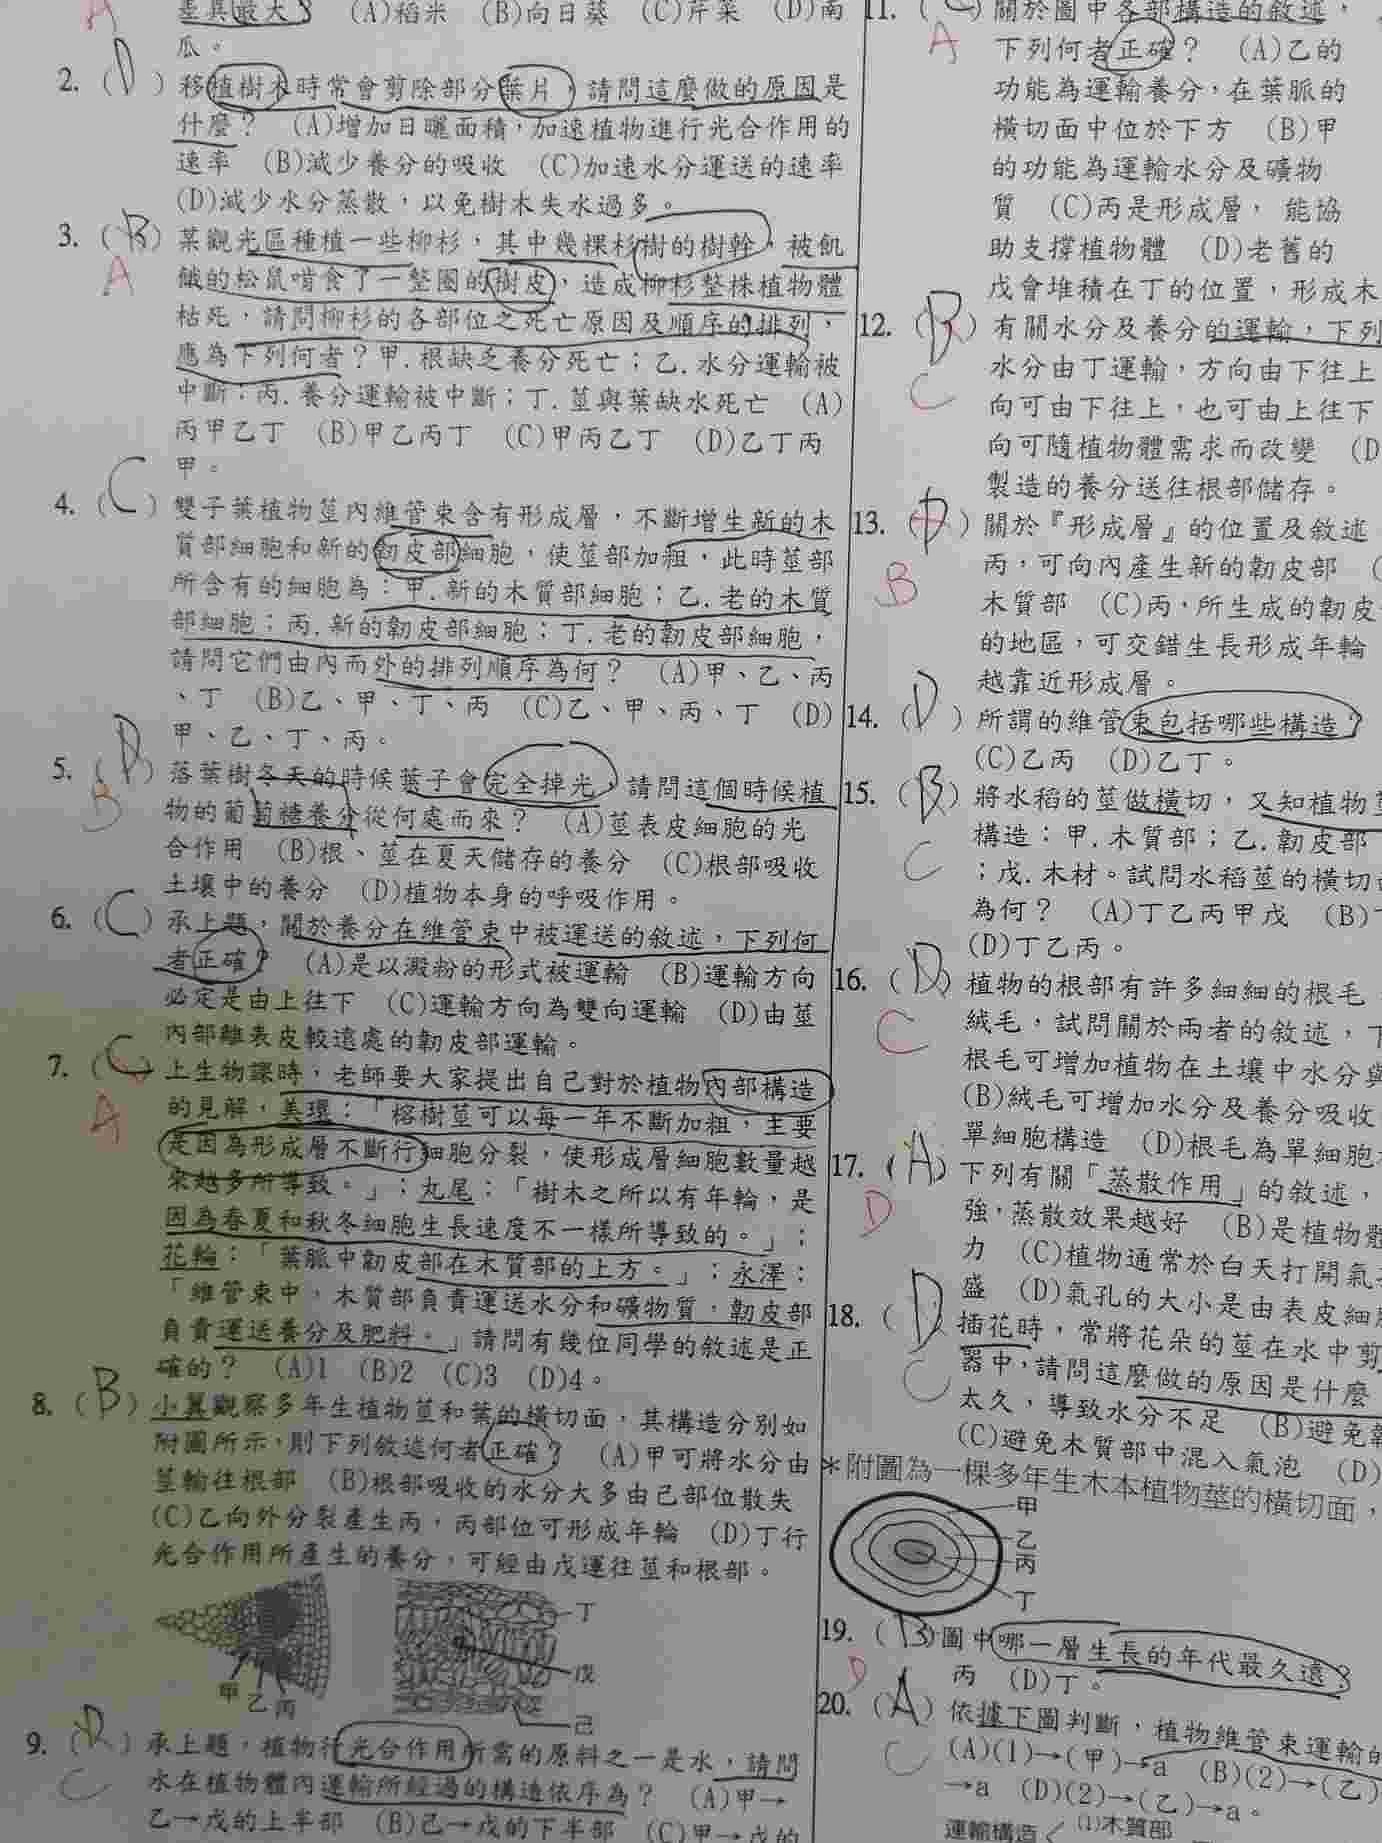 是具最大? (A)稻米 (B)向日葵 (C)芹菜 (D)南
瓜。
A
2. (D) 移植樹木時常會剪除部分葉片,請問這麼做的原因是
什麼? (A)增加日曬面積,加速植物進行光合作用的
速率 (B)減少養分的吸收 (C)加速水分運送的速率
(D)減少水分蒸散,以免樹木失水過多。
3. (B) 某觀光區種植一些柳杉,其中幾棵杉樹的樹幹,被飢
A
餓的松鼠啃食了一整圈的樹皮,造成柳杉整株植物體
枯死,請問柳杉的各部位之死亡原因及順序的排列,
應為下列何者?甲.根缺乏養分死亡;乙.水分運輸被
中斷;丙.養分運輸被中斷;丁.莖與葉缺水死亡 (A)
丙甲乙丁 (B)甲乙丙丁 (C)甲丙乙丁 (D)乙丁丙
甲。
4. (C) 雙子葉植物莖內維管束含有形成層,不斷增生新的木
質部細胞和新的韌皮部細胞,使莖部加粗,此時莖部
所含有的細胞為:甲.新的木質部細胞;乙.老的木質
部細胞;丙.新的韌皮部細胞;丁.老的韌皮部細胞,
請問它們由內而外的排列順序為何? (A)甲、乙、丙
、丁 (B)乙、甲、丁、丙 (C)乙、甲、丙、丁 (D)
甲、乙、丁、丙。
5. (D) 落葉樹冬天的時候葉子會完全掉光,請問這個時候植
B
物的葡萄糖養分從何處而來? (A)莖表皮細胞的光
合作用 (B)根、莖在夏天儲存的養分 (C)根部吸收
土壤中的養分 (D)植物本身的呼吸作用。
6. (C) 承上題,關於養分在維管束中被運送的敘述,下列何
者正確? (A)是以澱粉的形式被運輸 (B)運輸方向
必定是由上往下 (C)運輸方向為雙向運輸 (D)由莖
內部離表皮較遠處的韌皮部運輸。
7. (C) 上生物課時,老師要大家提出自己對於植物內部構造
A
的見解,美環:「榕樹莖可以每一年不斷加粗,主要
是因為形成層不斷行細胞分裂,使形成層細胞數量越
來越多所導致。」;丸尾:「樹木之所以有年輪,是
因為春夏和秋冬細胞生長速度不一樣所導致的。」;
花輪:「葉脈中韌皮部在木質部的上方。」;永澤:
「維管束中,木質部負責運送水分和礦物質,韌皮部
負責運送養分及肥料。」請問有幾位同學的敘述是正
確的? (A)1 (B)2 (C)3 (D)4。
8. (B) 小翼觀察多年生植物莖和葉的橫切面,其構造分別如
附圖所示,則下列敘述何者正確? (A)甲可將水分由
莖輸往根部 (B)根部吸收的水分大多由己部位散失
(C)乙向外分裂產生丙,丙部位可形成年輪 (D)丁行
光合作用所產生的養分,可經由戊運往莖和根部。
甲 乙 丙
丁
戊
己
9. (D) 承上題,植物行光合作用所需的原料之一是水,請問
C
水在植物體內運輸所經過的構造依序為? (A)甲→
乙→戊的上半部 (B)己→戊的下半部 (C)甲→戊的
11. (C) 關於圖中各部構造的敘述,
A
下列何者正確? (A)乙的
功能為運輸養分,在葉脈的
橫切面中位於下方 (B)甲
的功能為運輸水分及礦物
質 (C)丙是形成層, 能協
助支撐植物體 (D)老舊的
戊會堆積在丁的位置,形成木
12. (B) 有關水分及養分的運輸,下列
C
水分由丁運輸,方向由下往上
向可由下往上,也可由上往下
向可隨植物體需求而改變 (D
製造的養分送往根部儲存。
13. (D) 關於『形成層』的位置及敘述
B
丙,可向內產生新的韌皮部 (
木質部 (C)丙,所生成的韌皮
的地區,可交錯生長形成年輪
越靠近形成層。
14. (D) 所謂的維管束包括哪些構造?
(C)乙丙 (D)乙丁。
15. (B) 將水稻的莖做橫切,又知植物莖
C
構造:甲.木質部;乙.韌皮部
;戊.木材。試問水稻莖的橫切
為何? (A)丁乙丙甲戊 (B)
(D)丁乙丙。
16. (D) 植物的根部有許多細細的根毛
C
絨毛,試問關於兩者的敘述,下
根毛可增加植物在土壤中水分與
(B)絨毛可增加水分及養分吸收
單細胞構造 (D)根毛為單細胞
17. (A) 下列有關「蒸散作用」的敘述,
D
強,蒸散效果越好 (B)是植物體
力 (C)植物通常於白天打開氣
盛 (D)氣孔的大小是由表皮細
18. (D) 插花時,常將花朵的莖在水中剪
C
器中,請問這麼做的原因是什麼
太久,導致水分不足 (B)避免
(C)避免木質部中混入氣泡 (D)
*附圖為一棵多年生木本植物莖的橫切面,
甲
乙
丙
丁
19. (B) 圖中哪一層生長的年代最久遠?
D
丙 (D)丁。
20. (A) 依據下圖判斷,植物維管束運輸的
C
(A)(1)→(甲)→a (B)(2)→(乙)
→a (D)(2)→(乙)→a。
運輸構造 (1)木質部